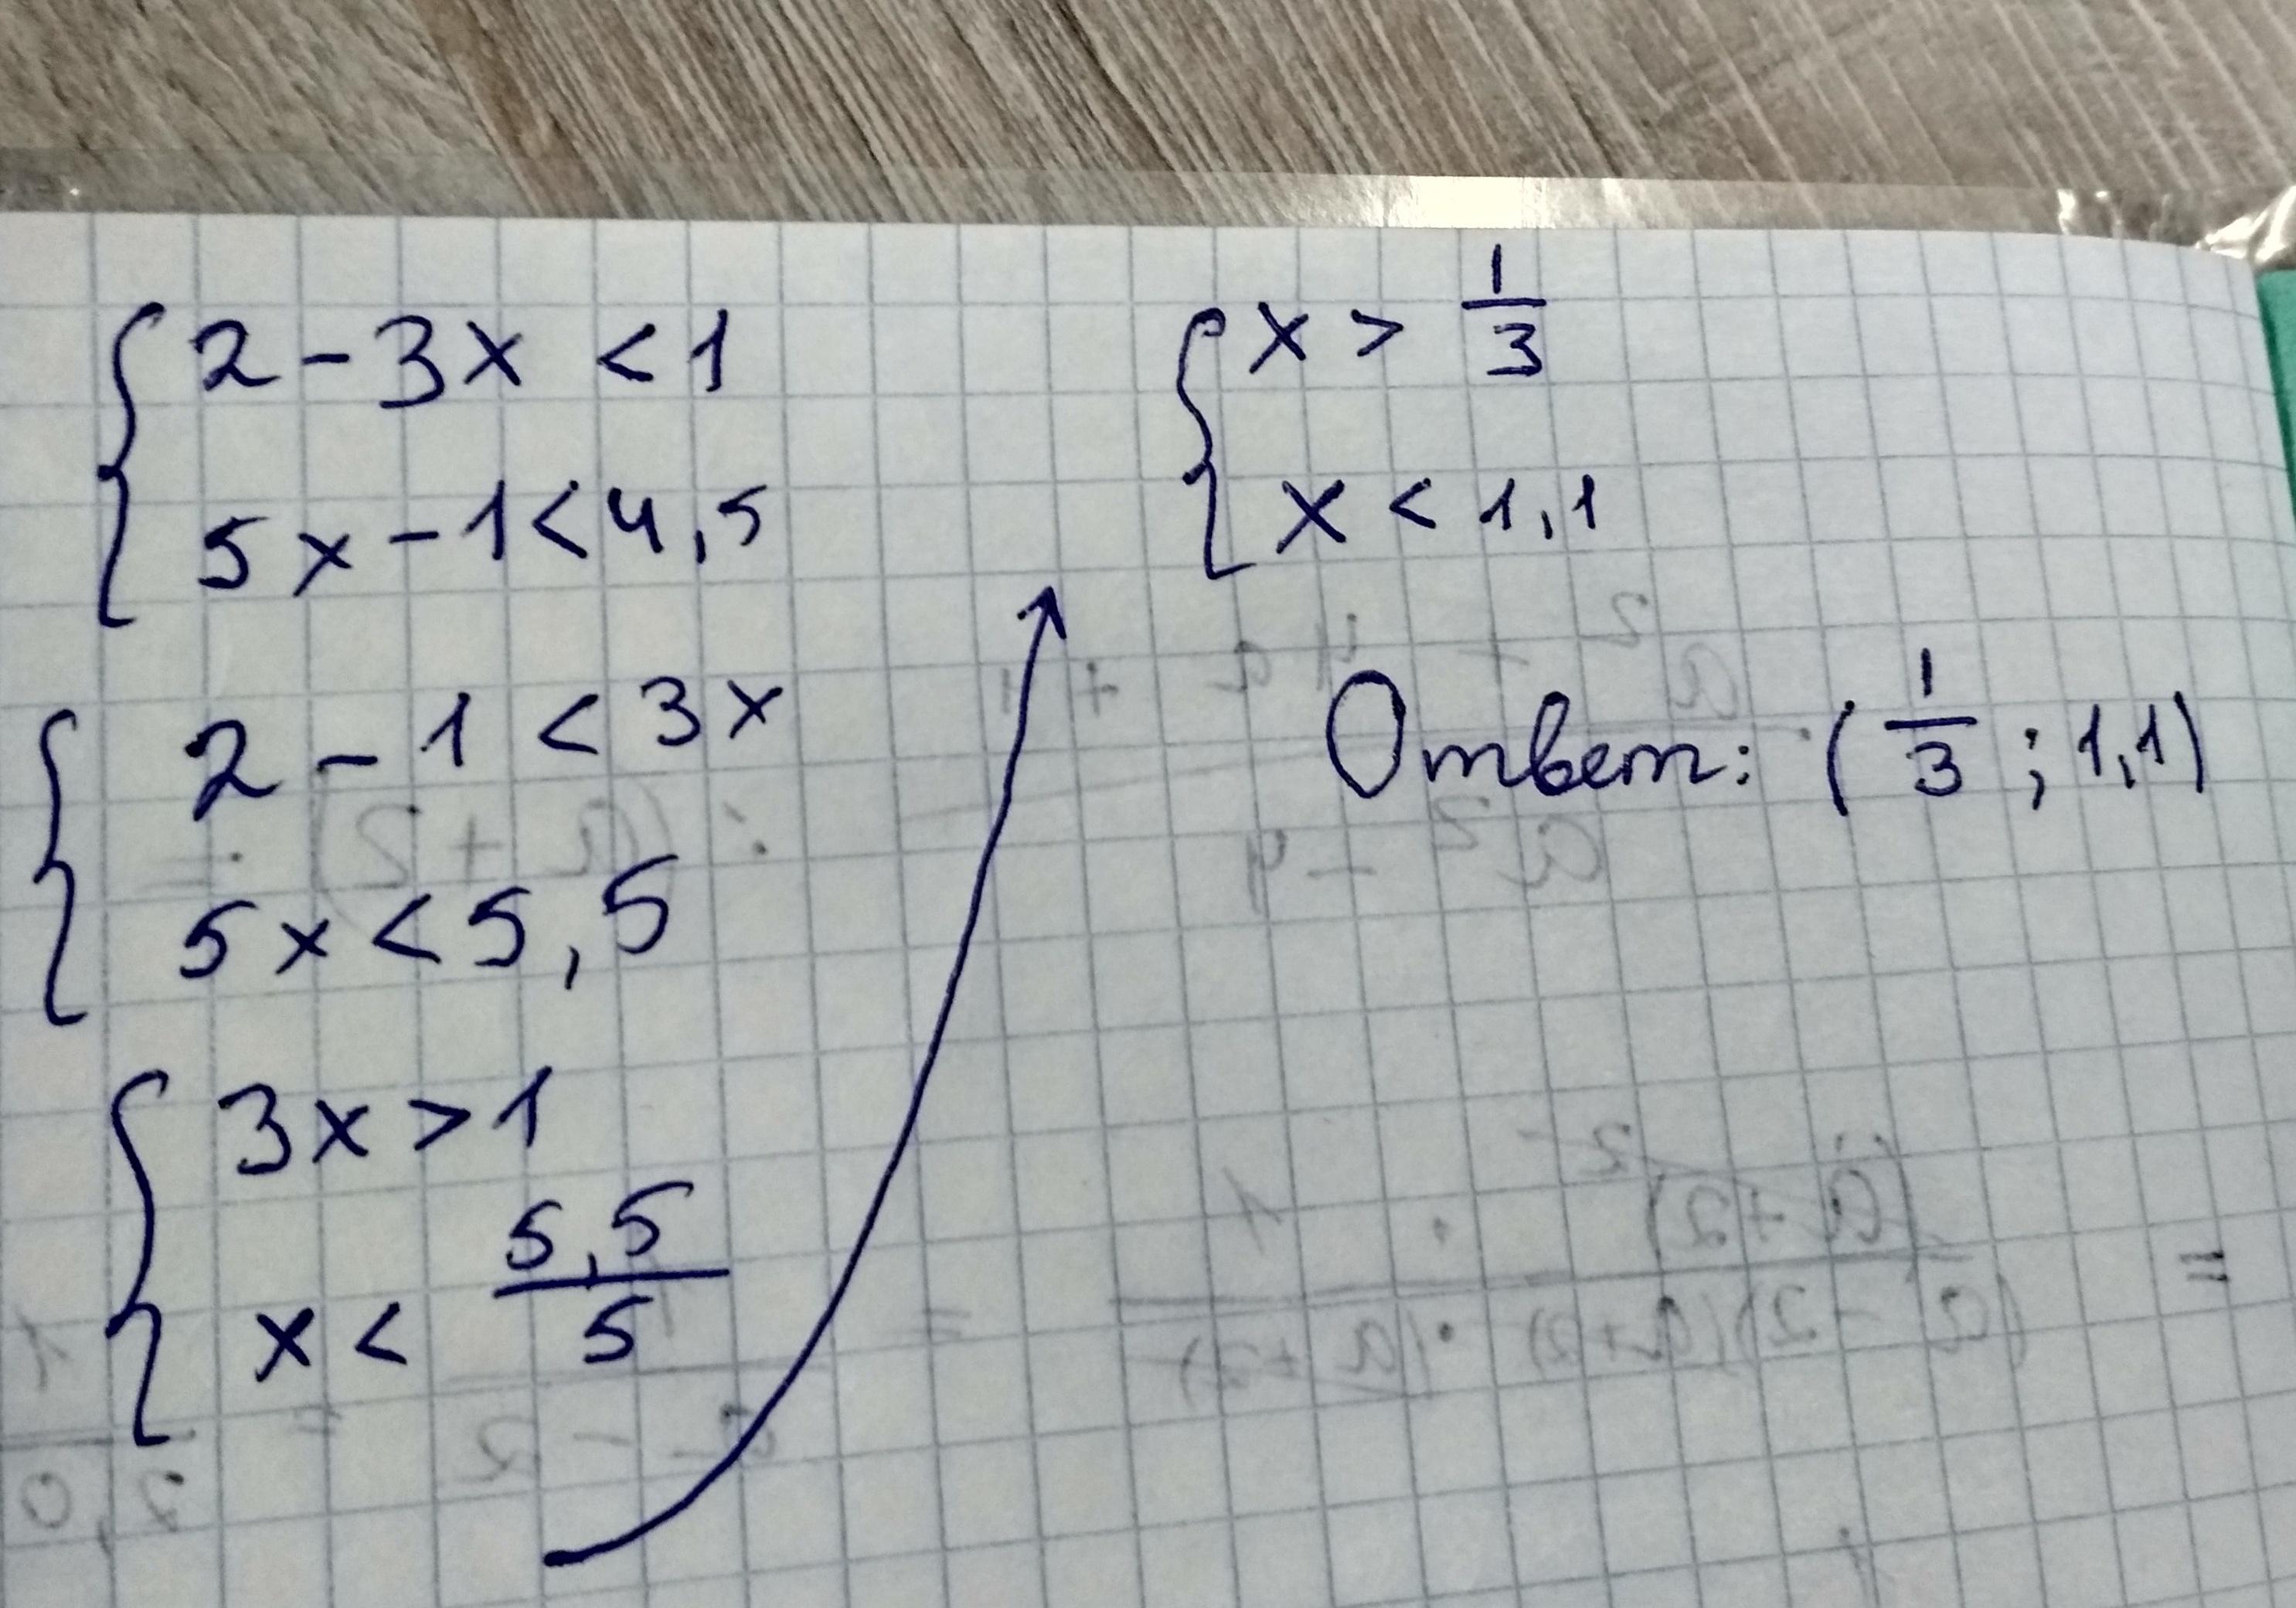 2 - 3x < 1
5x - 1 < 4,5
2 - 1 < 3x
5x < 5,5
3x > 1
x < 5,5/5
x > 1/3
x < 1,1
Ответ: (1/3; 1,1)